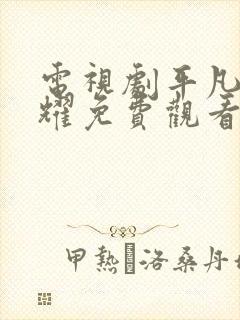 電視劇平凡
耀免費觀看
甲熱�洛桑丹